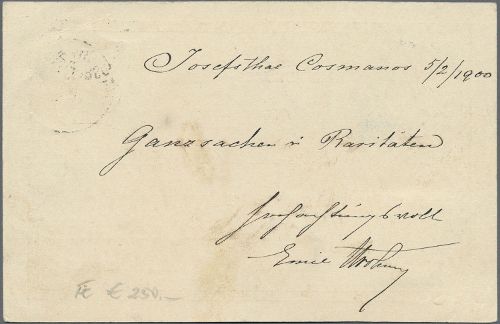 Josefsthal Cosmanos 5/2/1900
Ganzsachen & Raritäten
Hochachtungsvoll
Emil
€ 250.-